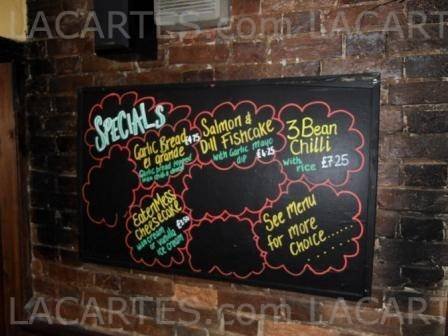 LACARTES.com
SPECIALS
Garlic Bread £4.25
el grande
Garlic bread topped
Salmon &
Dill Fishcake
with Garlic mayo
dip £6.25
3 Bean
Chilli
with
rice £7.25
Eaten Mess
Cheesecake
with cream £3.50
or vanilla
ice cream
See Menu
for more
Choice.......
LACARTES.com LACARTES.com LACARTES